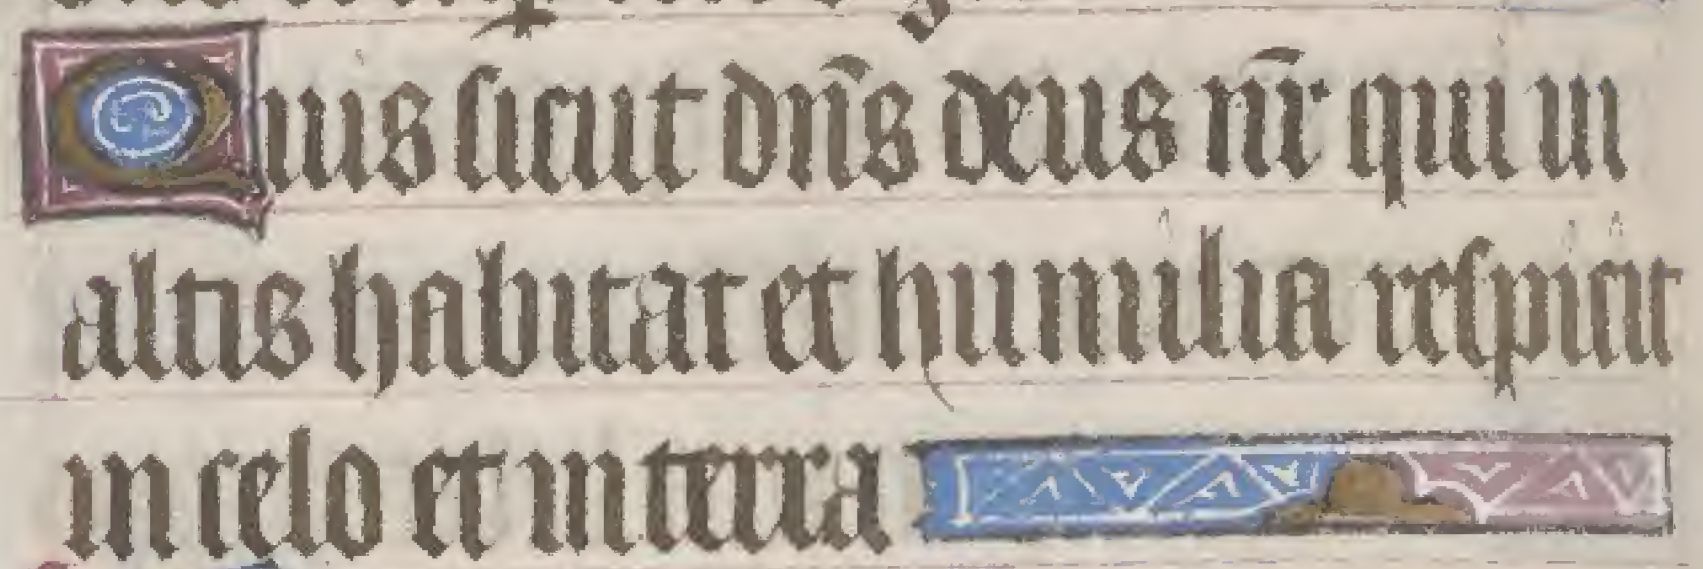 Quis sicut dn̄s deus nr̄ qui in
altis habitat et humilia respicit
in celo et in terra